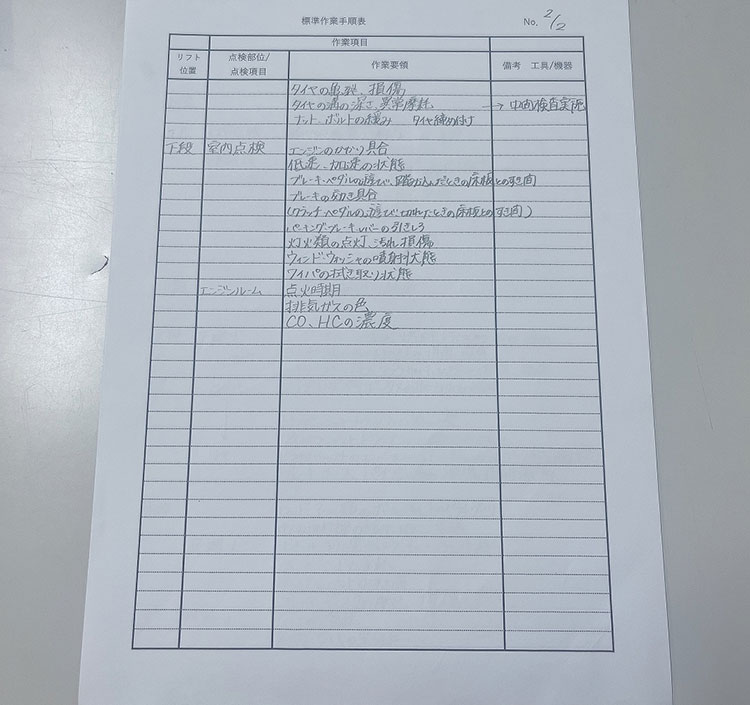 標準作業手順表
No. 2/2
作業項目
リフト位置
点検部位/点検項目
作業要領
備考 工具/機器
タイヤの亀裂、損傷
タイヤの溝の深さ、異常摩耗 → 中間検査実施
ナット、ボルトの緩み タイヤ締め付け
下段 室内点検 エンジンのかかり具合
低速、加速の状態
ブレーキ・ペダルの遊び、踏み込んだときの床板とのすき間
ブレーキの効き具合
(クラッチ・ペダルの遊び、切れたときの床板とのすき間)
パーキング・ブレーキ・レバーの引きしろ
灯火類の点灯、汚れ、損傷
ウィンド・ウォッシャの噴射状態
ワイパの拭き取り状態
エンジンルーム 点火時期
排気ガスの色
CO、HCの濃度